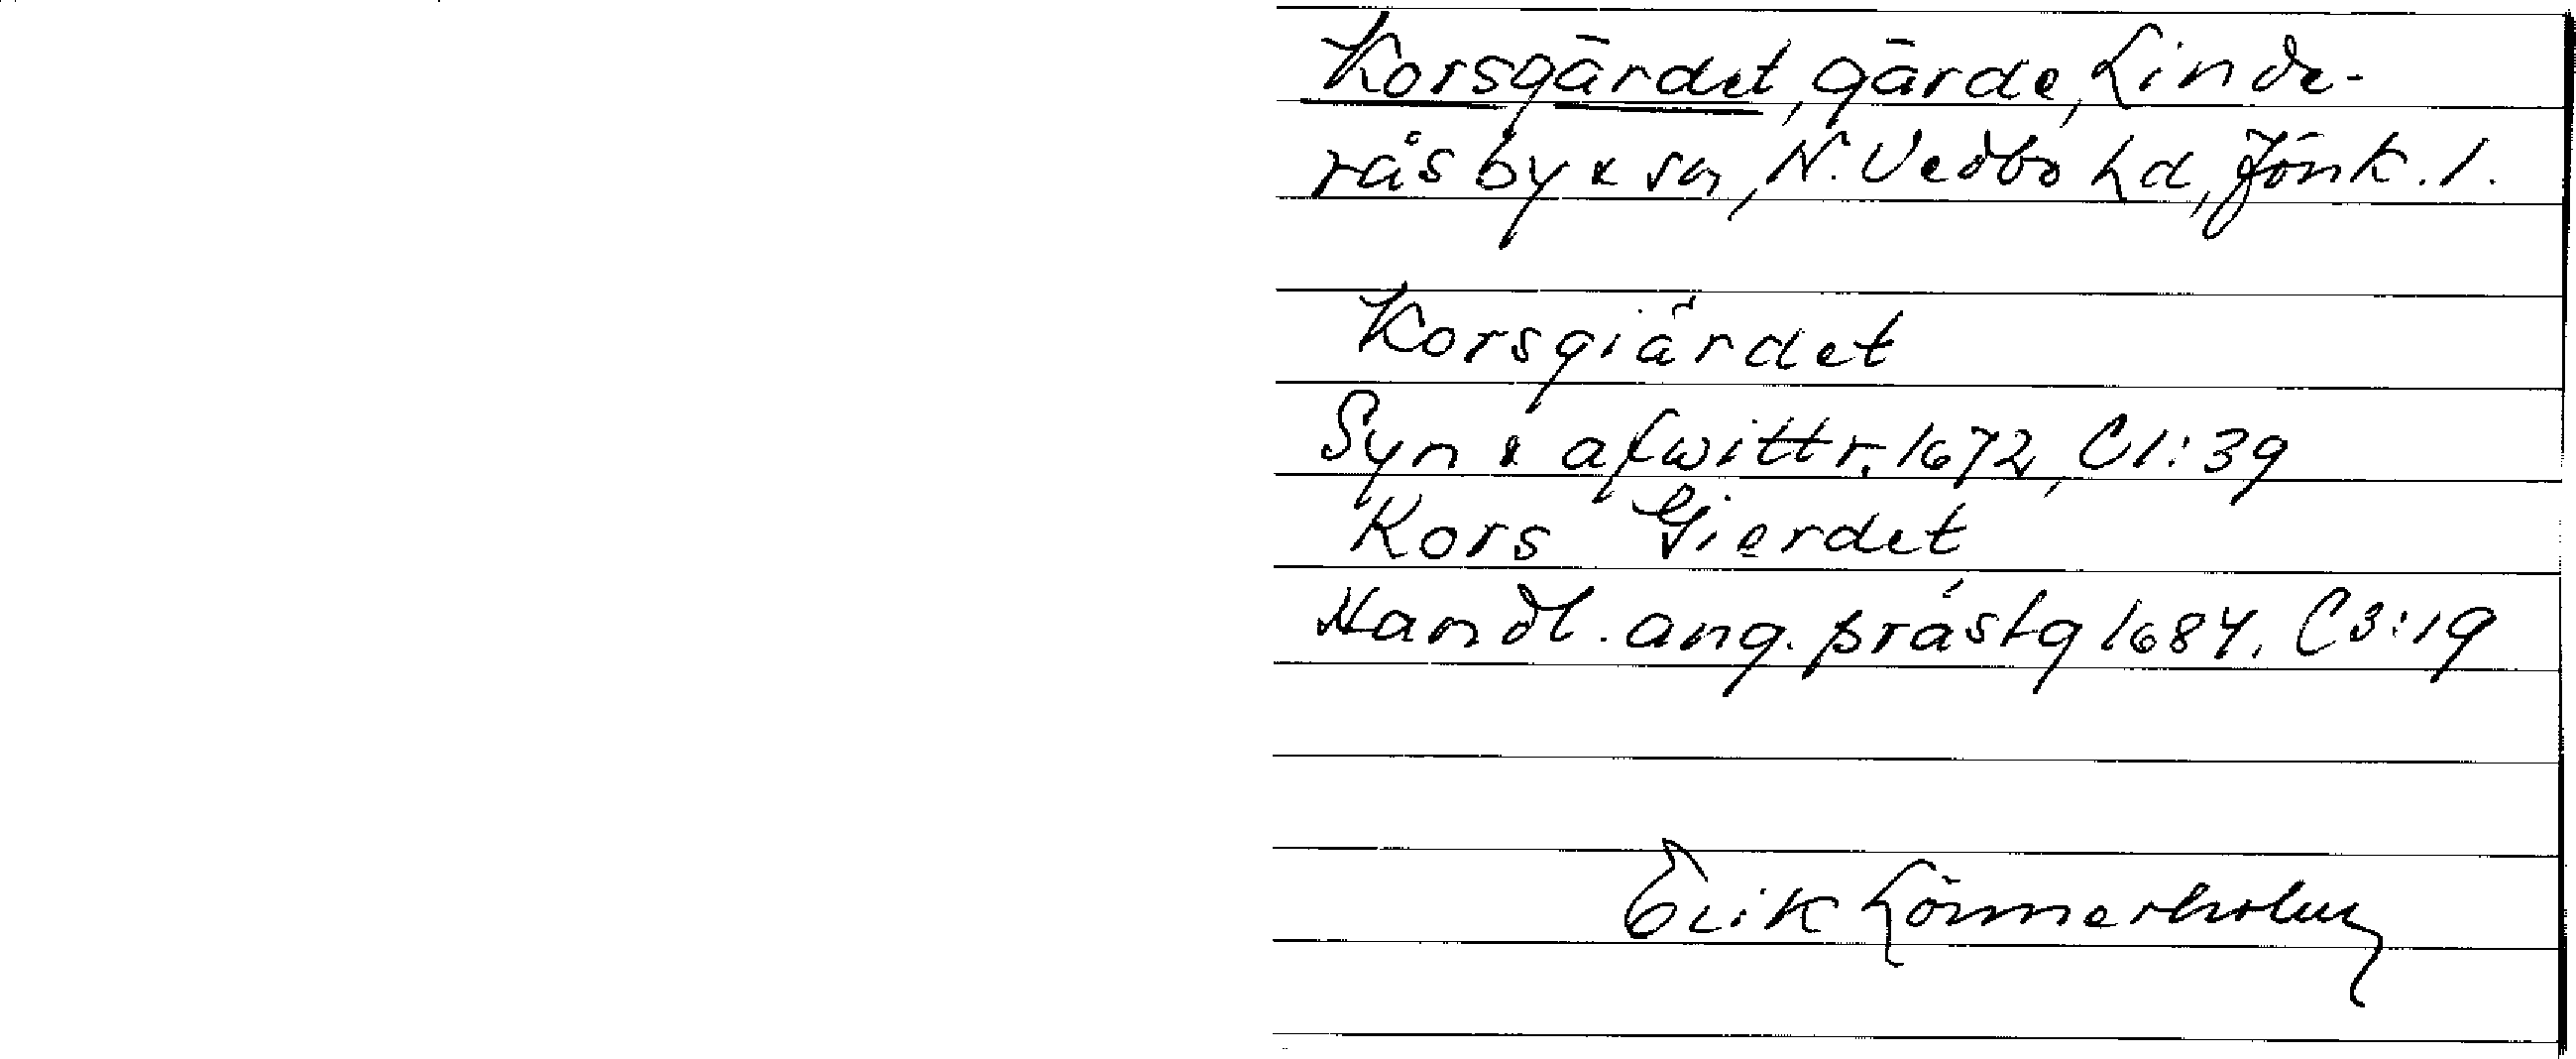 Korsgärdet, gärde, Linde-
rås by & sn, N. Vedbo hd, Jönk. l.
Korsgiärdet
Syn & afwittr. 1672, C1:39
Kors Gierdet
Handl. ang. prästg 1684. C3:19
Erik Lönnerholm